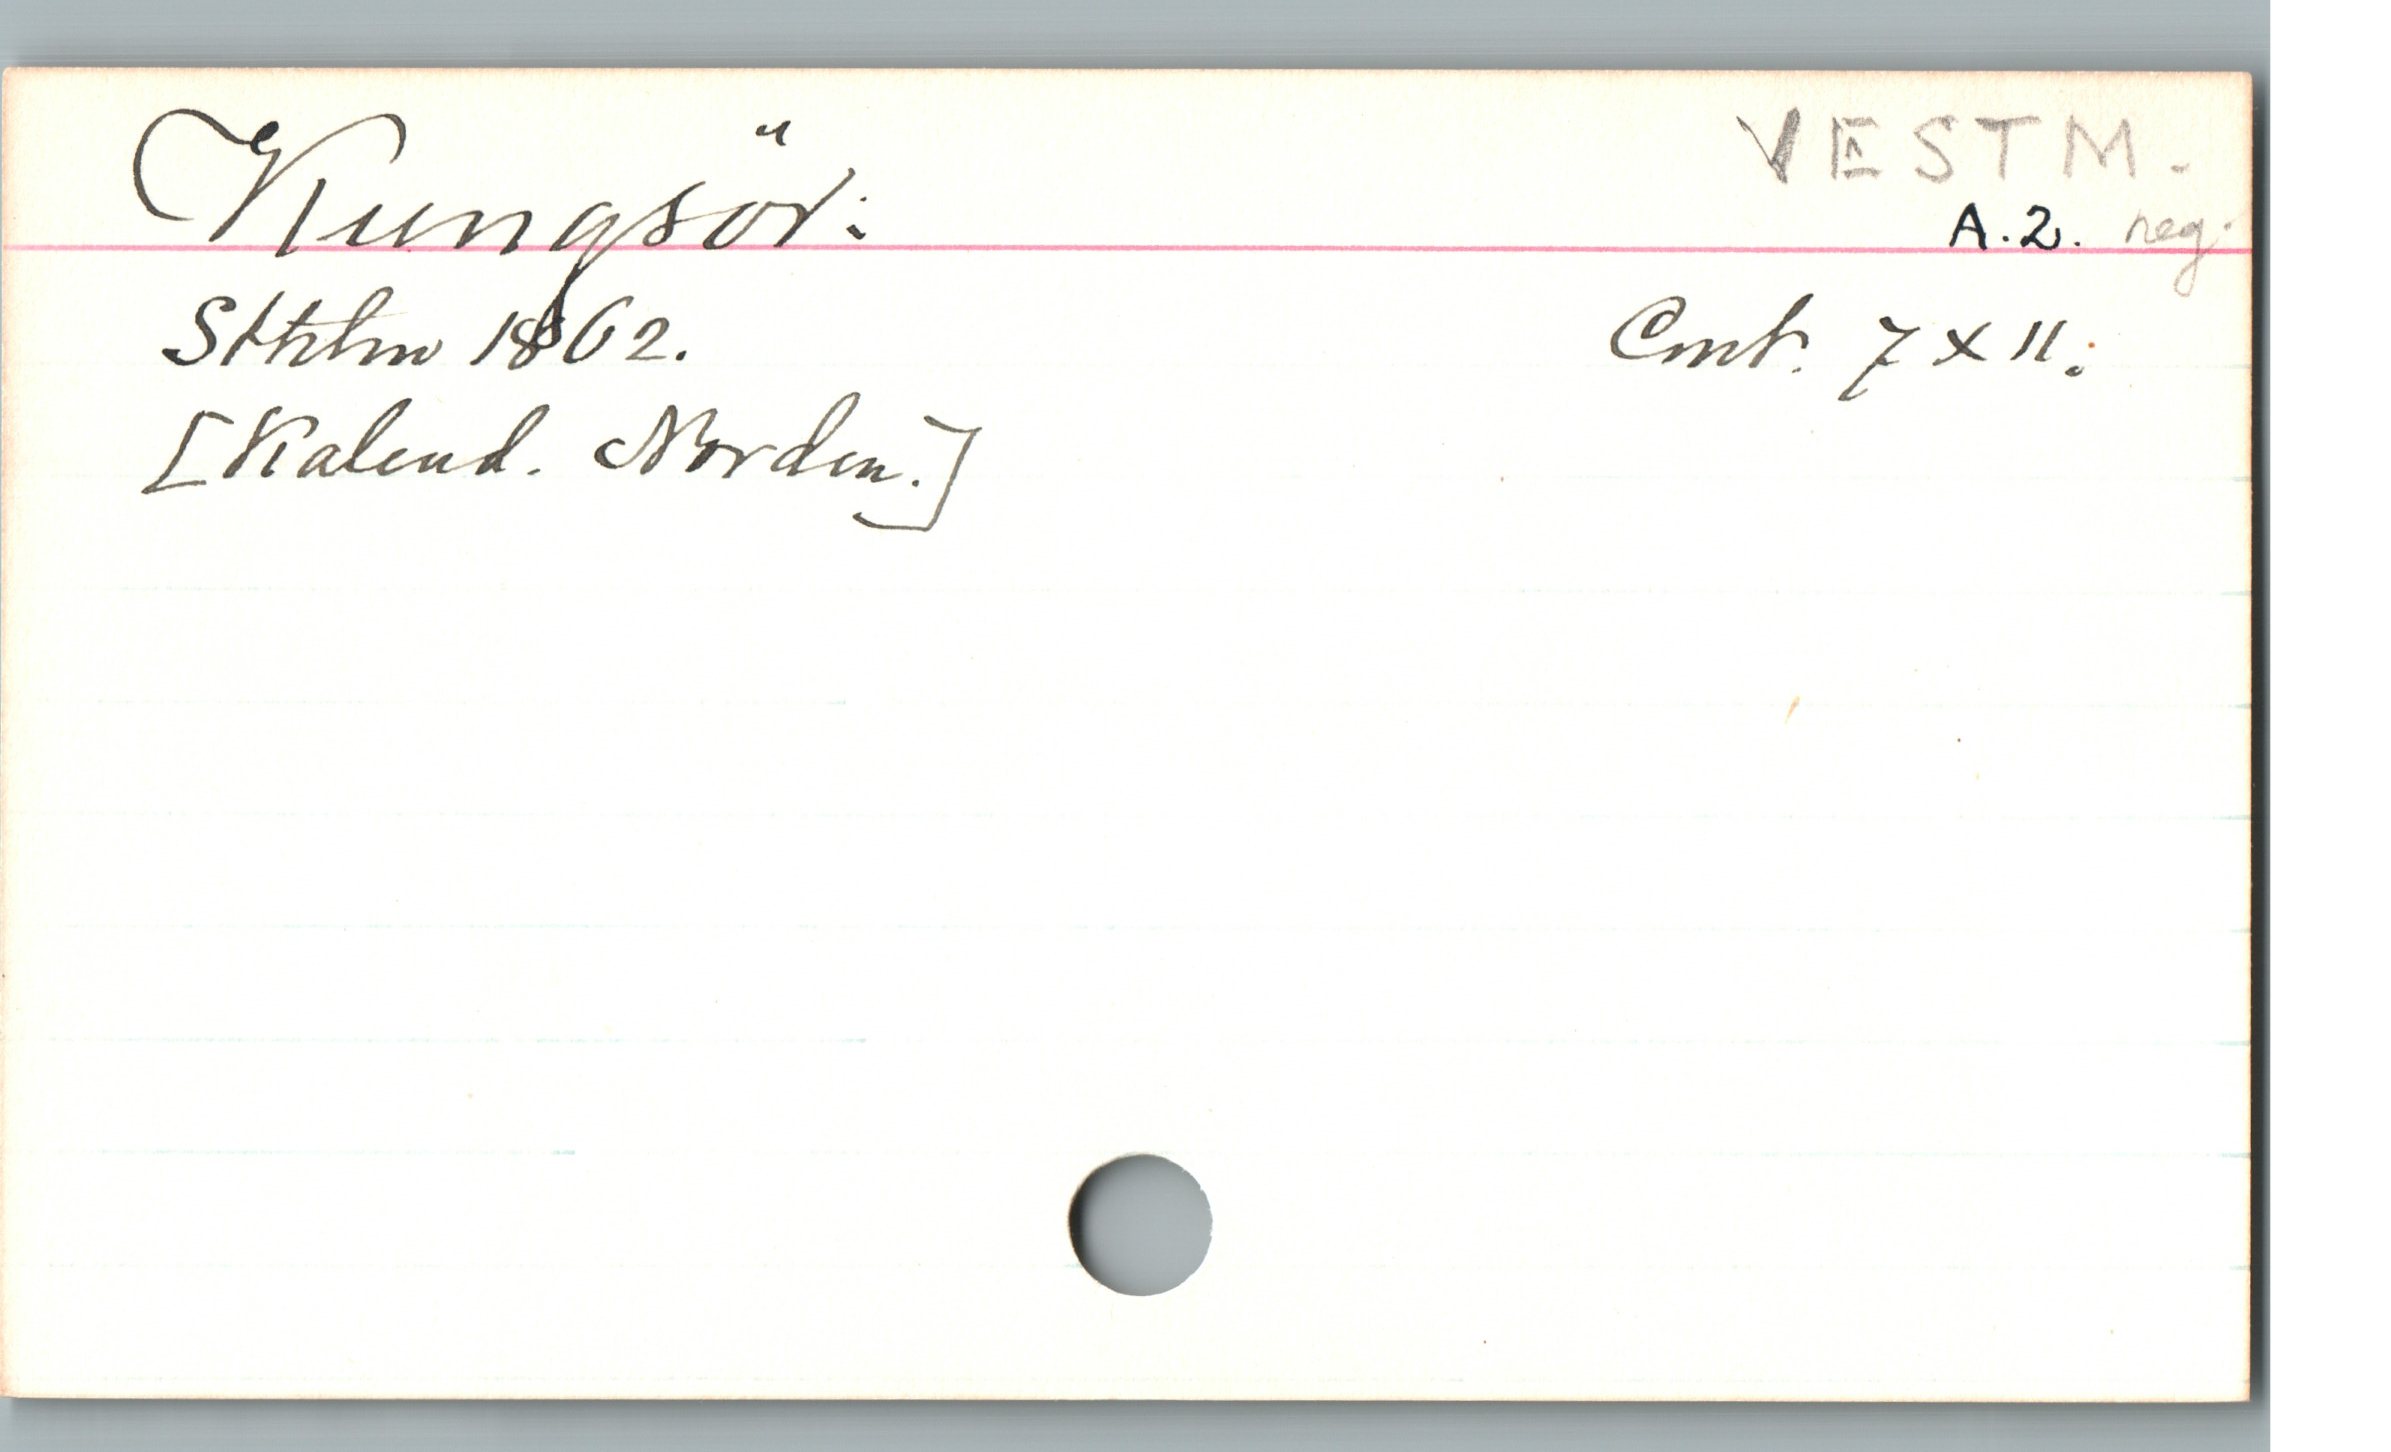 VESTM.
Kungsör:
A.2. neg.
Sthlm 1862.
Cmt. 7 x 11.
[Kalend. Norden.]